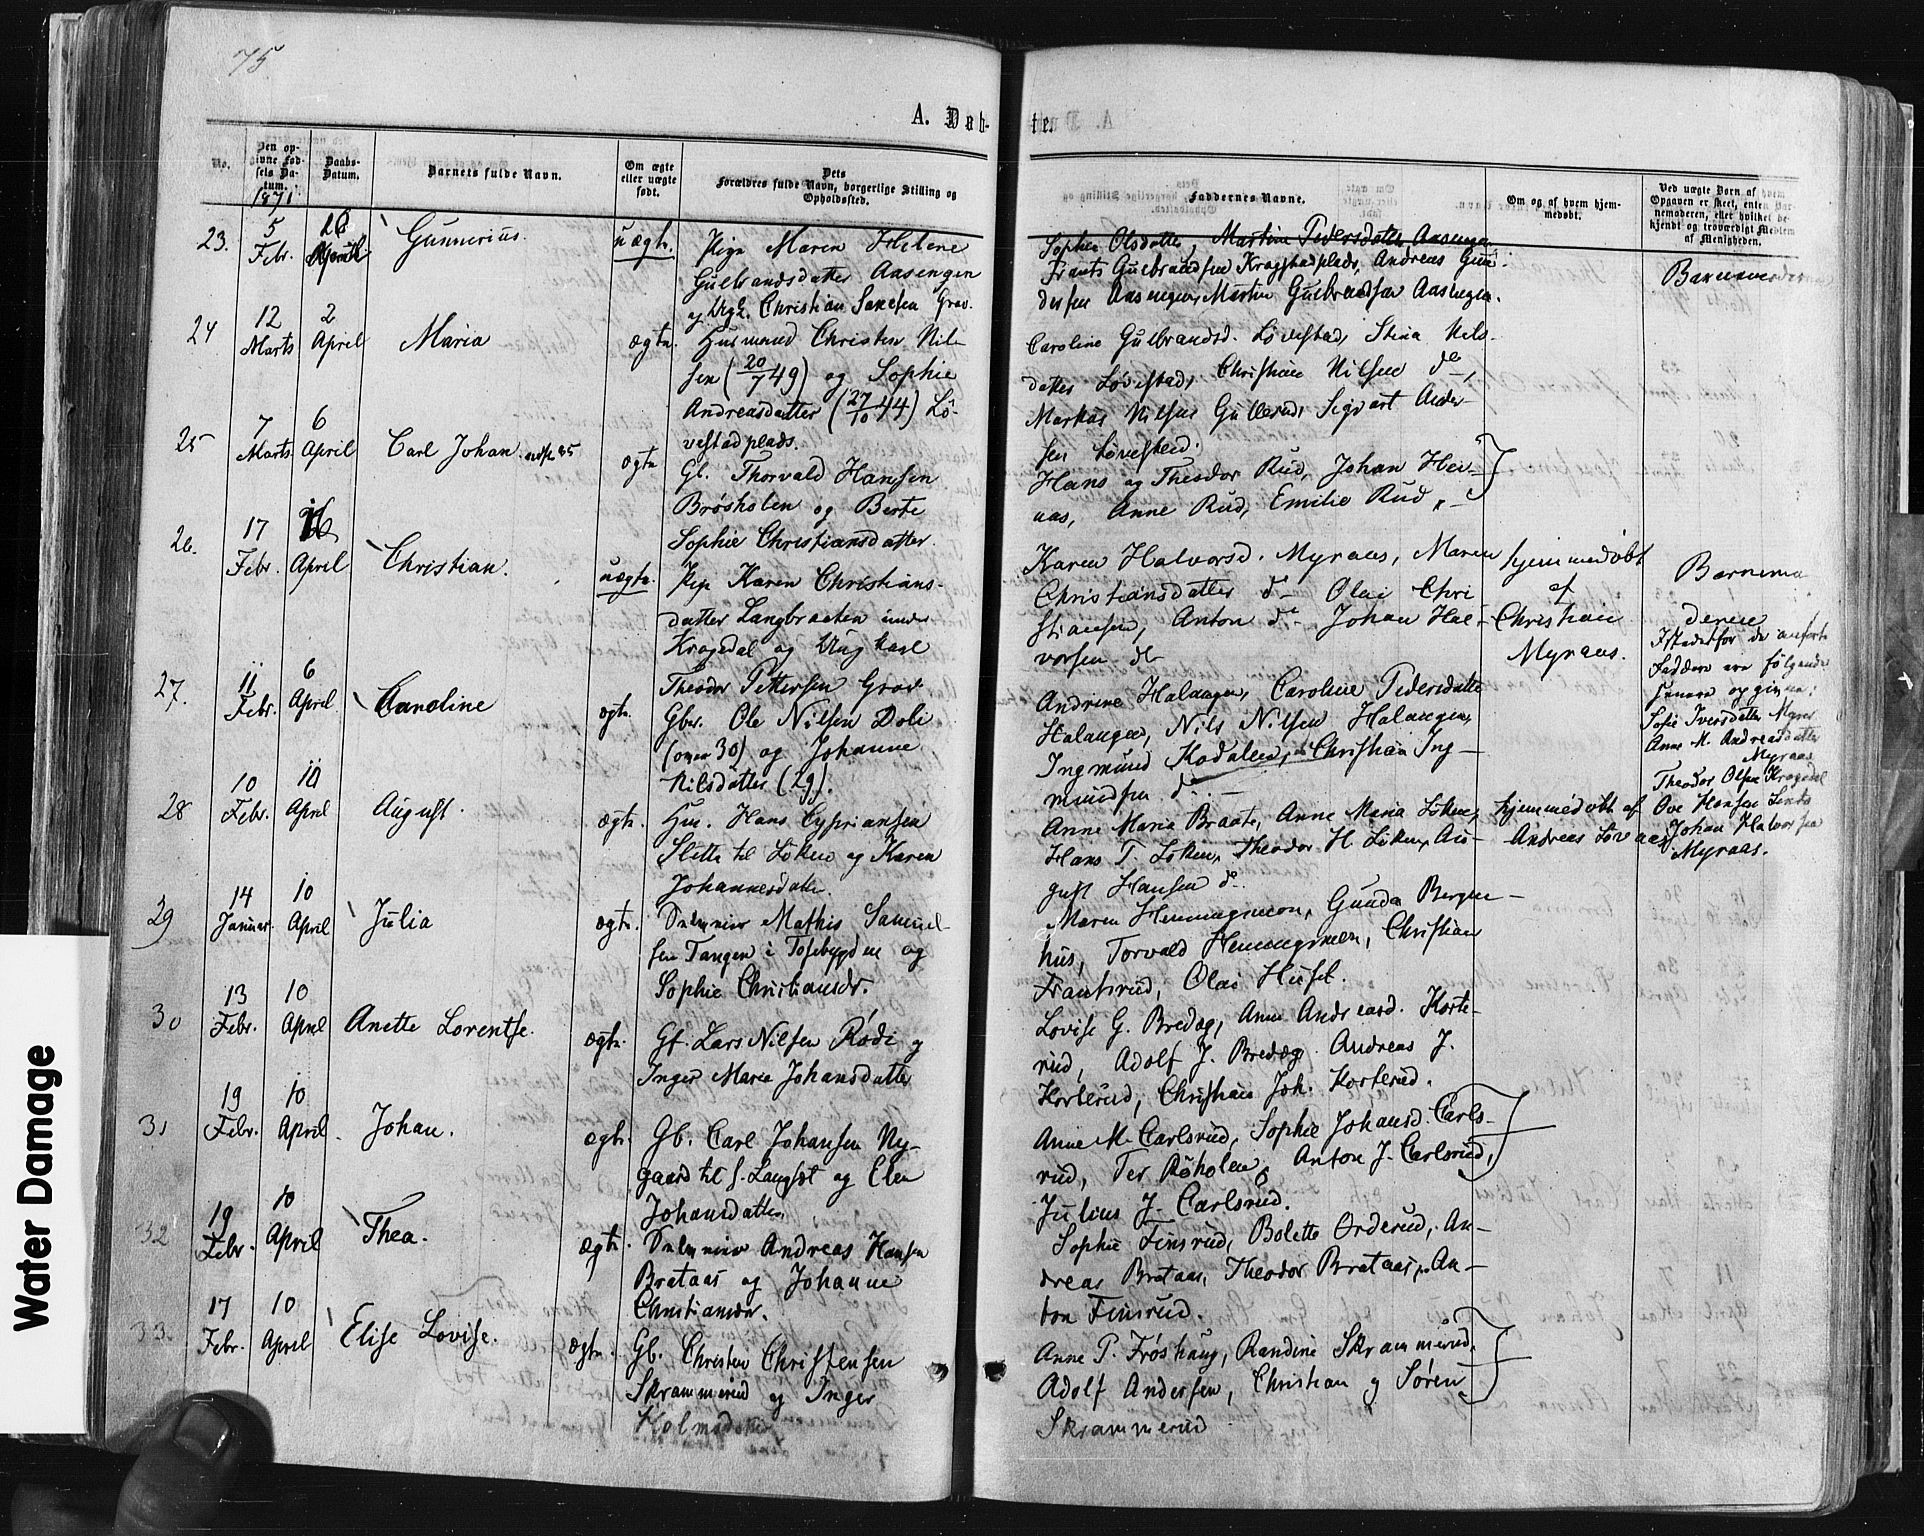 75
A. Dab-
te.
No.
Den op-
givne Fød-
sels Da-
tum.
1871
Daabs-
Datum.
Barnets fulde Navn.
Om ægte
eller uægte
født.
Dets
Forældres fulde Navn, borgerlige Stilling og
Opholdssted.
Faddernes Navne.
Om og af hvem hjem-
medøbt.
Ved uægte Børn af hvem
Opgaven er skeet, enten Bar-
nemoderen, eller hvilket be-
kjendt og troværdigt Medlem
af Menigheden.
23.
5
Febr.
Gunnerius.
uægte.
Pige Maren Helene
Gulbrandsdatter Aasengen
Christian
Sophie Olsdatter, Martine Pedersdatter Aasengen
Frants Gulbrandsen Kragstadplads, Andreas Gun-
dersen Aasengen, Martin Gulbrandsen Aasengen.
Barnemoderen
24
12
Marts
2
April
Maria
ægte.
Husmand Christen Nil-
sen (20/7 49) og Sophie
Andreasdatter (27/10 44) Lø-
vestadplads.
Caroline Gulbrandsd. Løvestad, Stina Nils-
datter Løvestad, Christian Nilsen do,
Markus Nilsen Gullerud, Sigvart Ander-
sen Løvestad.
25
7
Marts
6
April
Carl Johan.
ægte
Gb. Thorvald Hansen
Brøsholen og Berte
Sophie Christiansdatter.
Hans og Theodor Rud, Johan
Anne Rud, Emilie Rud
26.
17
Febr.
April
Christian.
uægte.
Pige Karen Christians-
datter Langbraaten under
Kragedal og Ungkarl
Theodor Pettersen Grav
Karen Halvorsd. Myraas, Maren
Christiansdatter do Olai Chri-
stiansen, Anton do Johan Hal-
vorsen do
hjemmedøbt
af
Christian
Myraas.
Barnemo-
deren
Istedetfor de anførte
Faddere ere følgende
senere opgivne:
Sofie Iversdatter Myrer
Anne M. Andreasdatter
Myraas
Theodor Olsen Kragedal
Ove Hansen
Johan Halvorsen
Myraas.
27.
11
Febr.
6
April
Caroline
ægte.
Gbr. Ole Nilsen Doli
(over 30) og Johanne
Nilsdatter (29).
Andrine Halangen, Caroline Pedersdatter
Halangen, Nils Nilsen Halangen,
Ingmund Kodalen, Christian Ing-
mundsen do.
28
10
Febr.
10
April
August.
ægte.
Hus. Hans Cypriansen
Slette til Løken og Karen
Johannesdatter.
Anne Maria Braate, Anne Maria Løken,
Hans T. Løken, Theodor H Løken, Au-
gust Hansen do.
hjemmedøbt af
Andreas Løvaas
29
14
Januar.
10
April
Julia
ægte.
Dalminer Mathis Samuel-
sen Tangen i Tosebygden og
Sophie Christiansdr.
Maren Henningsmoen, Gunda Bergers-
hus, Torvald Henningsmoen, Christian
Frantsrud, Olai
30
13
Febr.
10
April
Anette Lorentse.
ægte.
Gf. Lars Nilsen Rødi og
Inger Marie Johansdatter
Lovise G. Bredag, Anne Andreasd. Korte-
rud, Adolf J. Bredag Andreas J.
Korterud, Christian Joh. Korterud.
31
19
Febr.
10
April
Johan.
ægte.
Gb. Carl Johansen Ny-
gaard til og Elen
Johansdatter
Anne M. Carlsrud, Sophie Johansd. Carls-
rud, Ter Røholen, Anton J. Carlsrud,
Julius J. Carlsrud.
32
19
Febr.
10
April
Thea.
ægte.
Dalminer Andreas Hansen
Brataas og Johanne
Christiansdr.
Sophie Finsrud, Bolette Orderud, An-
dreas Brataas, Theodor Brataas, An-
ton Finsrud.
33
17
Febr.
10
April
Elise Lovise.
ægte.
Gb. Christen Christensen
Skrammerud og Inger
Anne P. Frøshaug, Randine Skrammerud,
Adolf Andersen, Christian og Søren
Skrammerud
Water Damage